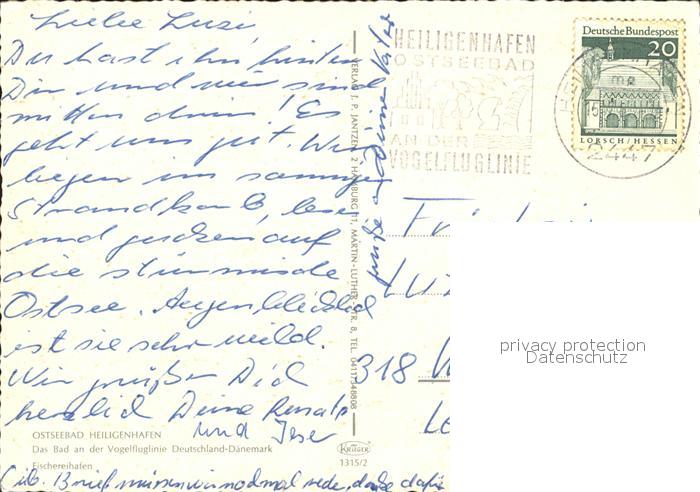 Liebe Luzi
Du hast ihn hinter
Dir und wir sind
mitten drin! Es
geht uns gut. Wir
liegen im sonnigen
Strandkorb, lesen
und gucken auf
die stürmische
Ostsee. Augenblicklich
ist sie sehr wild.
Wir grüßen Dich
herzlich Deine Renate
und
OSTSEEBAD HEILIGENHAFEN
Das Bad an der Vogelfluglinie Deutschland-Dänemark
Fischereihafen
Brief müssen wir nochmal
VERLAG J. P. JANTZEN, 2 HAMBURG 11, MARTIN-LUTHER-STR. 8, TEL. 0411/348808
KRÜGER
1315/2
grüße Deinen Vater
HEILIGENHAFEN
OSTSEEBAD
AN DER
VOGELFLUGLINIE
Deutsche Bundespost
20
LORSCH/HESSEN
2447
318
privacy protection
Datenschutz